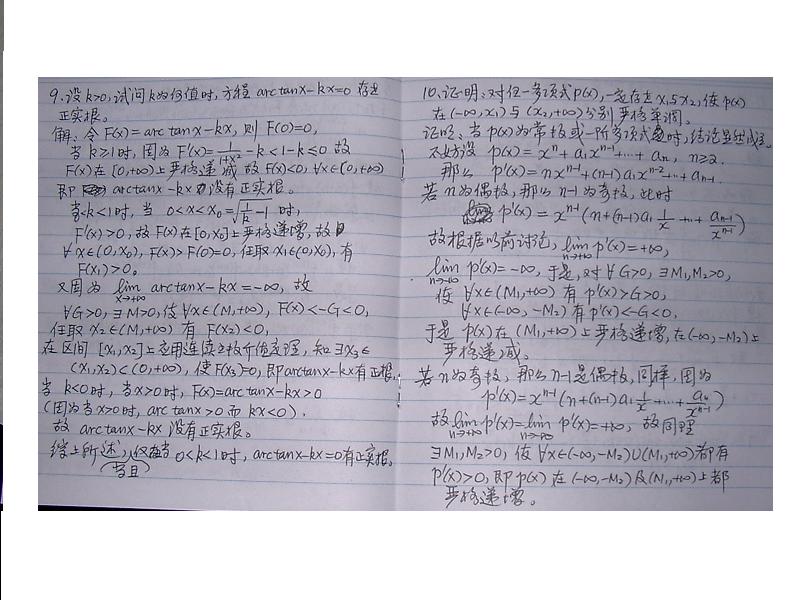 9.设k>0,试问k为何值时,方程 arctanx-kx=0 存在
正实根。
解:令F(x)=arctanx-kx,则F(0)=0,
当k≥1时,因为F'(x)=1/(1+x²)-k<1-k≤0 故
F(x)在[0,+∞)上严格递减 故F(x)<0,∀x∈(0,+∞)
即 arctanx-kx 没有正实根。
当<k<1时,当 0<x<x₀=√(1/k-1) 时,
F'(x)>0,故F(x)在[0,x₀]上严格递增,故
∀x∈(0,x₀),F(x)>F(0)=0,任取x₁∈(0,x₀),有
F(x₁)>0。
又因为 lim x→+∞ arctanx-kx=-∞,故
∀G>0,∃M>0,使∀x∈(M,+∞),F(x)<-G<0,
任取x₂∈(M,+∞)有F(x₂)<0,
在区间[x₁,x₂]上应用连续函数介值定理,知∃x₃∈
(x₁,x₂)⊂(0,+∞),使F(x₃)=0,即arctanx-kx有正根。
当k<0时,当x>0时,F(x)=arctanx-kx>0
(因为当x>0时,arctanx>0而kx<0).
故 arctanx-kx 没有正实根。
综上所述,仅当0<k<1时,arctanx-kx=0有正实根。
当且
10.证明:对任一多项式p(x),一定存在x₁与x₂,使p(x)
在(-∞,x₁)与(x₂,+∞)分别严格单调。
证明:当p(x)为常数或一阶多项式时,结论显然成立。
不妨设 p(x)=xⁿ+a₁xⁿ⁻¹+...+aₙ, n≥2.
那么 p'(x)=nxⁿ⁻¹+(n-1)a₁xⁿ⁻²+...+aₙ₋₁
若n为偶数,那么n-1为奇数,此时
p'(x)=xⁿ⁻¹(n+(n-1)a₁ 1/x+...+aₙ₋₁/xⁿ⁻¹)
故根据以前讨论,lim n→+∞ p'(x)=+∞,
lim n→-∞ p'(x)=-∞,于是,对∀G>0,∃M₁,M₂>0,
使 ∀x∈(M₁,+∞)有p'(x)>G>0,
∀x∈(-∞,-M₂)有p'(x)<-G<0,
于是 p(x)在(M₁,+∞)上严格递增,在(-∞,-M₂)上
严格递减。
若n为奇数,那么n-1是偶数,同样,因为
p'(x)=xⁿ⁻¹(n+(n-1)a₁ 1/x+...+aₙ/xⁿ⁻¹)
故lim n→+∞ p'(x)=lim n→-∞ p'(x)=+∞,故同理
∃M₁,M₂>0,使∀x∈(-∞,-M₂)∪(M₁,+∞)都有
p'(x)>0,即p(x)在(-∞,-M₂)及(M₁,+∞)上都
严格递增。